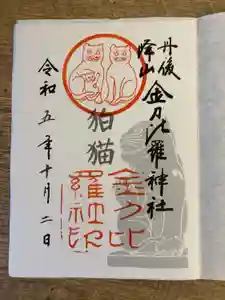 丹後
峰山
金刀比羅神社
狛猫
金刀比
羅神社印
令和五年十月二日